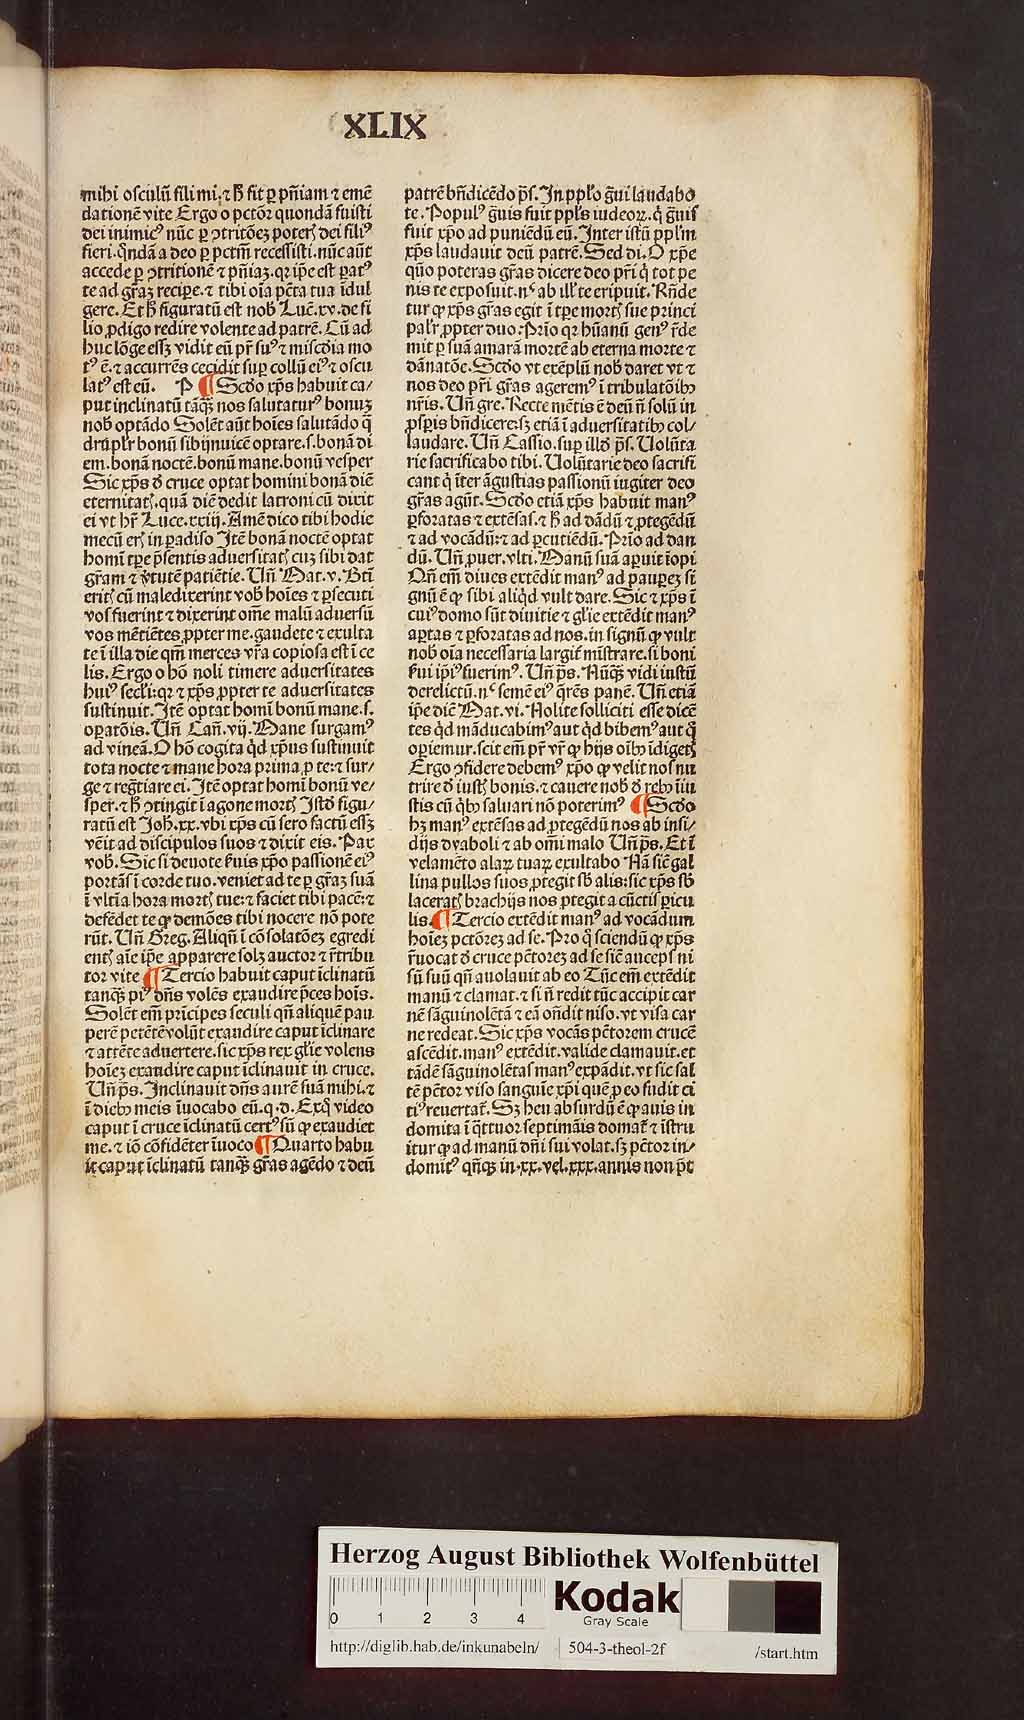 XLIX
mihi osculū fili mi. ⁊ h̄ fit ꝑ pn̄iam ⁊ emē
dationē vite Ergo o pctōr quondā fuisti
dei inimicꝰ nūc ꝑ ꝯtritōeꝫ poteris dei filiꝰ
fieri. q̄ndā a deo ꝑ pctm̄ recessisti. nūc aūt
accede ꝑ ꝯtritionē ⁊ pn̄iaꝫ. qꝛ ip̄e est ꝑatꝰ
te ad gr̄aꝫ recipe. ⁊ tibi oīa pctā tua idul
gere. Et h̄ figuratū est nob̄ Luc̄. xv. de fi
lio ꝓdigo redire volente ad patrē. Cū ad
huc lōge eēꝫ vidit eū pr̄ suꝰ ⁊ misc̄dia mo
tꝰ ē. ⁊ accurrēs cecidit suꝑ collū eiꝰ ⁊ oscu
latꝰ est eū. P ¶ Scd̄o xp̄s habuit ca/
put inclinatū tāqꝫ nos salutaturꝰ bonuꝫ
nob̄ optādo Solēt aūt hoīes salutādo q̄
drupl̄r bonū sibijnuicē optare. s. bonā di
em. bonā noctē. bonū mane. bonū vesper
Sic xp̄s ī cruce optat homini bonā diē
eternitatꝭ. quā diē dedit latroni cū dixit
ei vt hr̄ Luce. xxiij. Amē dico tibi hodie
mecū erꝭ in ꝑadiso Itē bonā noctē optat
homī tꝑe p̄sentis aduersitatꝭ cuꝫ sibi dat
gr̄am ⁊ v̄tutē patiētie. Vn̄ Mat. v. Bt̄i
eritꝭ cū maledixerint vob̄ hoīes ⁊ ꝑsecuti
vos fuerint ⁊ dixerint om̄e malū aduersū
vos mētiētes ꝓpter me. gaudete ⁊ exulta
te ī illa die qm̄ merces vr̄a copiosa est ī ce
lis. Ergo o hō noli timere aduersitates
huiꝰ secl̄i: qꝛ ⁊ xp̄s ꝓpter te aduersitates
sustinuit. Itē optat homī bonū mane. s.
oꝑatōis. Vn̄ Can̄. vij. Mane surgamꝰ
ad vineā. O hō cogita qd̄ xp̄us sustinuit
tota nocte ⁊ mane hora prima ꝓ te: ⁊ sur/
ge ⁊ regr̄tiare ei. Itē optat homī bonū ve/
sper. ⁊ h̄ ꝯtingit ī agone mortꝭ Istd̄ figu/
ratū est Joh̄. xx. vbi xp̄s cū sero factū eēꝫ
vēit ad discipulos suos ⁊ dixit eis. Pax
vob̄. Sic si deuote ẜuis xp̄o passionē eiꝰ
portās ī corde tuo. veniet ad te ꝑ gr̄aꝫ suā
ī vltīa hora mortꝭ tue: ⁊ faciet tibi pacē: ⁊
defēdet te qꝫ demōes tibi nocere nō pote
rūt. Vn̄ Greg. Aliqn̄ ī cōsolatōeꝫ egredi
entꝭ aīe ip̄e apparere solꝫ auctor ⁊ r̄tribu
tor vite ¶ Tercio habuit caput īclinatū
tanqꝫ piꝰ dn̄s volēs exaudire p̄ces hoīs.
Solēt em̄ prīcipes seculi qn̄ aliquē pau
perē petētē volūt exaudire caput īclinare
⁊ attēte aduertere. sic xp̄s rex gl̄ie volens
hoīeꝫ exaudire caput īclinauit in cruce.
Vn̄ ps̄. Inclinauit dn̄s aurē suā mihi. ⁊
ī dieb⁹ meis īuocabo eū. q. d. Exq̄ video
caput ī cruce īclinatū certꝰ sū ꝙ exaudiet
me. ⁊ iō cōfidēter īuoco ¶ Quarto habu
it caput īclinatū tanqꝫ gr̄as agēdo ⁊ deū
patrē bn̄dicēdo p̄s. In ppl̄o ḡui laudabo
te. Populꝰ ḡuis fuit ppl̄s iudeoꝝ. q̄ ḡuis
fuit xp̄o ad puniēdū eū. Inter istū ppl̄m
xp̄s laudauit deū patrē. Sed di. O xp̄e
quō poteras gr̄as dicere deo pr̄i q̄ tot pe
nis te exposuit. nᶜ ab ill̄ te eripuit. Rn̄de
tur ꝙ xp̄s gr̄as egit ī tꝑe mortꝭ sue princi
pal̄r ꝓpter duo. Prīo qꝛ hūanū genꝰ r̄de
mit ꝑ suā amarā mortē ab eterna morte ⁊
dānatōe. Scd̄o vt exēplū nob̄ daret vt ⁊
nos deo pr̄i gr̄as ageremꝰ ī tribulatōib⁹
nr̄is. Vn̄ gre. Recte mētis ē deū n̄ solū in
ꝓsꝑis bn̄dicere: sꝫ etiā ī aduersitatib⁹ col/
laudare. Vn̄ Cassio. suꝑ illd̄ ps̄. Uolūta
rie sacrificabo tibi. Uolūtarie deo sacrifi
cant q̄ īter āgustias passionū iugiter deo
gr̄as agūt. Scd̄o etiā xp̄s habuit manꝰ
ꝑforatas ⁊ extēsas. ⁊ h̄ ad dādū ⁊ ꝓtegēdū
⁊ ad vocādū: ⁊ ad ꝑcutiēdū. Prīo ad dan
dū. Vn̄ ꝓuer. vlti. Manū suā aꝑuit īopi
Qn̄ em̄ diues extēdit manꝰ ad pauꝑeꝫ si
gnū ē ꝙ sibi aliqd̄ vult dare. Sic ⁊ xp̄s ī
cuiꝰ domo sūt diuitie ⁊ gl̄ie extēdit manꝰ
aꝑtas ⁊ ꝑforatas ad nos. in signū ꝙ vult
nob̄ oīa necessaria largit̄ mīstrare. si boni
ẜui ip̄iꝰ fuerimꝰ. Vn̄ ps̄. Nūqꝫ vidi iustū
derelictū. nᶜ semē eiꝰ q̄rēs panē. Vn̄ etiā
ip̄e dic̄ Mat. vi. Nolite solliciti esse dicē
tes qd̄ māducabimꝰ aut qd̄ bibemꝰ aut q̄
opiemur. scit em̄ pr̄ vr̄ ꝙ hijs oīb⁹ īdigetꝭ
Ergo ꝯfidere debemꝰ xp̄o ꝙ velit nos nu
trire d̄ iustꝭ bonis. ⁊ cauere nob̄ d̄ reb⁹ īiu
stis cū q̄b⁹ saluari nō poterimꝰ ¶ Scd̄o
hꝫ manꝰ extēsas ad ꝓtegēdū nos ab insi/
dijs dyaboli ⁊ ab om̄i malo Vn̄ ps̄. Et ī
velamēto alaꝝ tuaꝝ exultabo Nā sic̄ gal
lina pullos suos ꝓtegit sb̄ alis: sic xp̄s sb̄
laceratꝭ brachijs nos ꝓtegit a cūctis ꝑicu
lis. ¶ Tercio extēdit manꝰ ad vocādum
hoīeꝫ pctōreꝫ ad se. Pro q̄ sciendū ꝙ xp̄s
r̄uocat d̄ cruce pctōreꝫ ad se sic̄ auceps ni
sū suū qn̄ auolauit ab eo Tūc em̄ extēdit
manū ⁊ clamat. ⁊ si n̄ redit tūc accipit car
nē sāguinolētā ⁊ eā on̄dit niso. vt visa car
ne redeat. Sic xp̄s vocās pctōrem crucē
ascēdit. manꝰ extēdit. valide clamauit. et
tādē sāguinolētas manꝰ expādit. vt sic sal
tē pctōr viso sanguīe xp̄i quē ꝓ eo fudit ci
tiꝰ reuertat̄. Sꝫ heu absurdū ē ꝙ auis in
domita ī q̄ttuor septimāis domat̄ ⁊ īstru
itur ꝙ ad manū dn̄i sui volat. sꝫ pctōr in/
domitꝰ qn̄qꝫ in. xx. vel. xxx. annis non pt̄
Herzog August Bibliothek Wolfenbüttel
0 1 2 3 4
Kodak
Gray Scale
http://diglib.hab.de/inkunabeln/ 504-3-theol-2f /start.htm